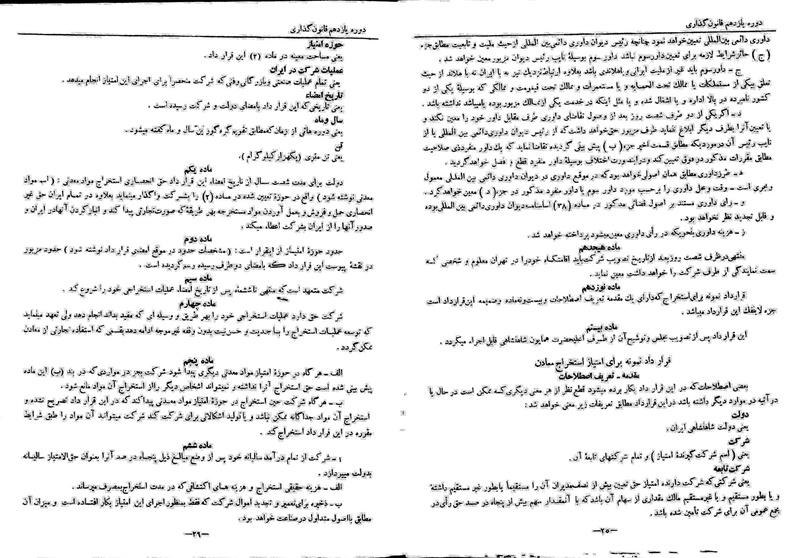 دوره یازدهم قانون‌گذاری
داوری دائمی بین‌المللی تعیین خواهد نمود چنانچه رئیس دیوان داوری دائمی بین المللی از حیث ملیت و تابعیت مطابق جزء
( ج ) حائز شرایط لازمه برای تعیین داور سوم نباشد داور سوم بوسیلهٔ نایب رئیس دیوان مزبور معین خواهد شد .
ج - داور سوم باید غیر از ملیت ایرانی و هلاندی باشد بعلاوه ارتباط نزدیک نیز نه با ایران نه با هلاند از حیث
تعلق بیکی از مستملکات یا ممالک تحت الحمایه و یا مستعمرات و ممالک تحت قیمومت و ممالکی که بوسیلهٔ یکی از دو
کشور نامبرده در بالا اداره و یا اشغال شده و یا مثل اینکه در خدمت یکی از ممالک مزبور بوده یا میباشد نداشته باشد .
د - اگر یکی از دو طرف شصت روز بعد از وصول تقاضای داوری طرف مقابل داور خود را معین نکند و
یا تعیین آنرا بطرف دیگر ابلاغ ننماید طرف مزبور حق خواهد داشت که از رئیس دیوان داوری دائمی بین المللی یا از
نایب رئیس آن در موردیکه مطابق قسمت اخیر جزء ( ب ) پیش بینی گردیده تقاضا نماید که یک داور منفرد ذی صلاحیت
مطابق مقررات مذکور در فوق تعیین کند و در اینصورت اختلاف بوسیلهٔ داور منفرد قطع و فصل خواهد گردید .
ه - طرز داوری مطابق همان اصولی خواهد بود که در موقع داوری در دیوان داوری دائمی بین المللی معمول
و مجری است - وقت و محل داوری را بر حسب مورد داور سوم یا داور منفرد مذکور در جزء ( د ) معین خواهد کرد .
و - رای داوری مستند بر اصول قضائی مذکور در ماده (۳۸) اساسنامه دیوان داوری دائمی بین المللی بوده
و قابل تجدید نظر نخواهد بود .
ز - هزینه داوری بنحویکه در رأی داوری معین میشود پرداخته خواهد شد .
ماده هیجدهم
منتهی در ظرف شصت روز بعد از تاریخ تصویب شرکت باید اقامتگاه خود را در تهران معلوم و شخصی که
سمت نمایندگی از طرف شرکت را خواهد داشت معین نماید .
ماده نوزدهم
قرارداد نمونه برای استخراج که دارای یک مقدمه تعریف اصطلاحات و بیست و نه ماده و ضمیمه این قرارداد است
جزء لاینفک این قرارداد میباشد .
ماده بیستم
این قرارداد پس از تصویب مجلس و توشیح آن از طرف اعلیحضرت همایون شاهنشاهی قابل اجراء میگردد .
قرار داد نمونه برای امتیاز استخراج معادن
مقدمه - تعریف اصطلاحات
بعضی اصطلاحات که در این قرار داد بکار برده میشود قطع نظر از هر معنی دیگری که ممکن است در حال یا
در آتیه در موارد دیگر داشته باشد در این قرارداد مطابق تعریفات زیر معنی خواهد شد :
دولت
یعنی دولت شاهنشاهی ایران .
شرکت
یعنی ( اسم شرکت گیرندهٔ امتیاز ) و تمام شرکتهای تابعهٔ آن .
شرکت تابعه
یعنی شرکتی که شرکت دارنده امتیاز حق تعیین بیش از نصف مدیران آن را مستقیماً یا بطور غیر مستقیم داشته
و یا بطور مستقیم و یا غیر مستقیم مالک مقداری از سهام آن باشد که با آنمقدار سهم بیش از پنجاه در صد حق رأی در
مجمع عمومی آن برای شرکت تأمین شده باشد .
-۲۵۰-
دوره یازدهم قانون‌گذاری
حوزه امتیاز
یعنی مساحت معینه در ماده (۲) این قرار داد .
عملیات شرکت در ایران
یعنی تمام عملیات صنعتی و بازرگانی و فنی که شرکت منحصراً برای اجرای این امتیاز انجام میدهد .
تاریخ امضاء
یعنی تاریخی که این قرار داد بامضای دولت و شرکت رسیده است .
سال و ماه
یعنی دوره هائی از زمان که مطابق تقویم گره گور این سال و ماه گفته میشود .
تن
یعنی تن متری ( یکهزار کیلوگرام ) .
ماده یکم
دولت برای مدت شصت سال از تاریخ امضاء این قرار داد حق انحصاری استخراج مواد معدنی : ( اسم مواد
معدنی نوشته شود ) واقع در حوزهٔ تعیین شده در ماده (۲) را بشرکت واگذار مینماید بعلاوه در تمام ایران حق غیر
انحصاری حمل و فروش و بعمل آوردن مواد مستخرجه بهر طریقه که صورت تجارتی پیدا کند و انبار کردن آنها در ایران و
صدور آنها را از ایران بشرکت اعطاء میکند .
ماده دوم
حدود حوزهٔ امتیاز از اینقرار است : ( مشخصات حدود در موقع امضای قرار داد نوشته شود ) حدود مزبور
در نقشهٔ پیوست این قرار داد که بامضای دو طرف رسیده رسم گردیده است .
ماده سیم
شرکت متعهد است که منتهی تا ششماه پس از تاریخ امضاء عملیات استخراجی خود را شروع کند .
ماده چهارم
شرکت حق دارد عملیات استخراجی خود را بهر طریق و وسیله ای که مفید بداند انجام دهد ولی تعهد مینماید
که توسعه عملیات استخراج را با جدیت و حسن نیت بدون وقفه غیر موجه ادامه دهد بقسمی که استفاده تجارتی از معادن
ممکن گردد .
ماده پنجم
الف - هر گاه در حوزهٔ امتیاز مواد معدنی دیگری پیدا شود شرکت بجز در مواردی که در بند (ب) این ماده
پیش بینی شده است حق استخراج آنرا نداشته و نمیتواند اشخاص دیگر را از استخراج آن مواد مانع شود .
ب - هر گاه شرکت حین استخراج در حوزهٔ امتیاز مواد معدنی پیدا کند که در این قرار داد تصریح نشده و
استخراج آن مواد جداگانه ممکن نباشد و یا تولید اشکالاتی برای شرکت کند شرکت میتواند آن مواد را طبق شرایط
مقرره در این قرار داد استخراج کند .
ماده ششم
۱ - شرکت از تمام درآمد سالیانه خود پس از وضع مبالغ ذیل پنجاه در صد آنرا بعنوان حق‌الامتیاز سالیانه
بدولت میپردازد .
الف - هزینه حقیقی استخراج و هزینه های اکتشافی که در مدت استخراج بمصرف میرساند .
ب - ذخیره برای تعمیر و تجدید اموال شرکت که فقط بمنظور اجرای این امتیاز بکار افتاده است و میزان آن
مطابق با اصول متداول در صناعت خواهد بود .
-۲۹-